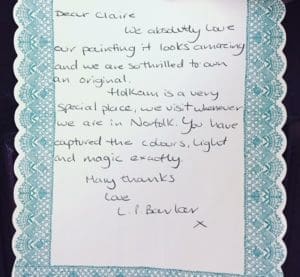 Dear Claire
We absolutely love
our painting it looks amazing
and we are so thrilled to own
an original.
Holkham is a very
special place, we visit whenever
we are in Norfolk. You have
captured the colours, light
and magic exactly.
Many thanks
Love
L.P. Barker
x